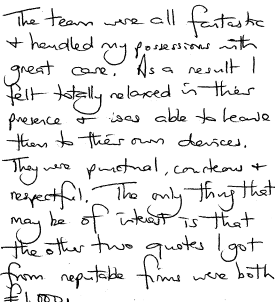 The team were all fantastic
+ handled my possessions with
great care. As a result I
felt totally relaxed in their
presence + was able to leave
them to their own devices.
They were punctual, courteous +
respectful. The only thing that
may be of interest is that
the other two quotes I got
from reputable firms were both